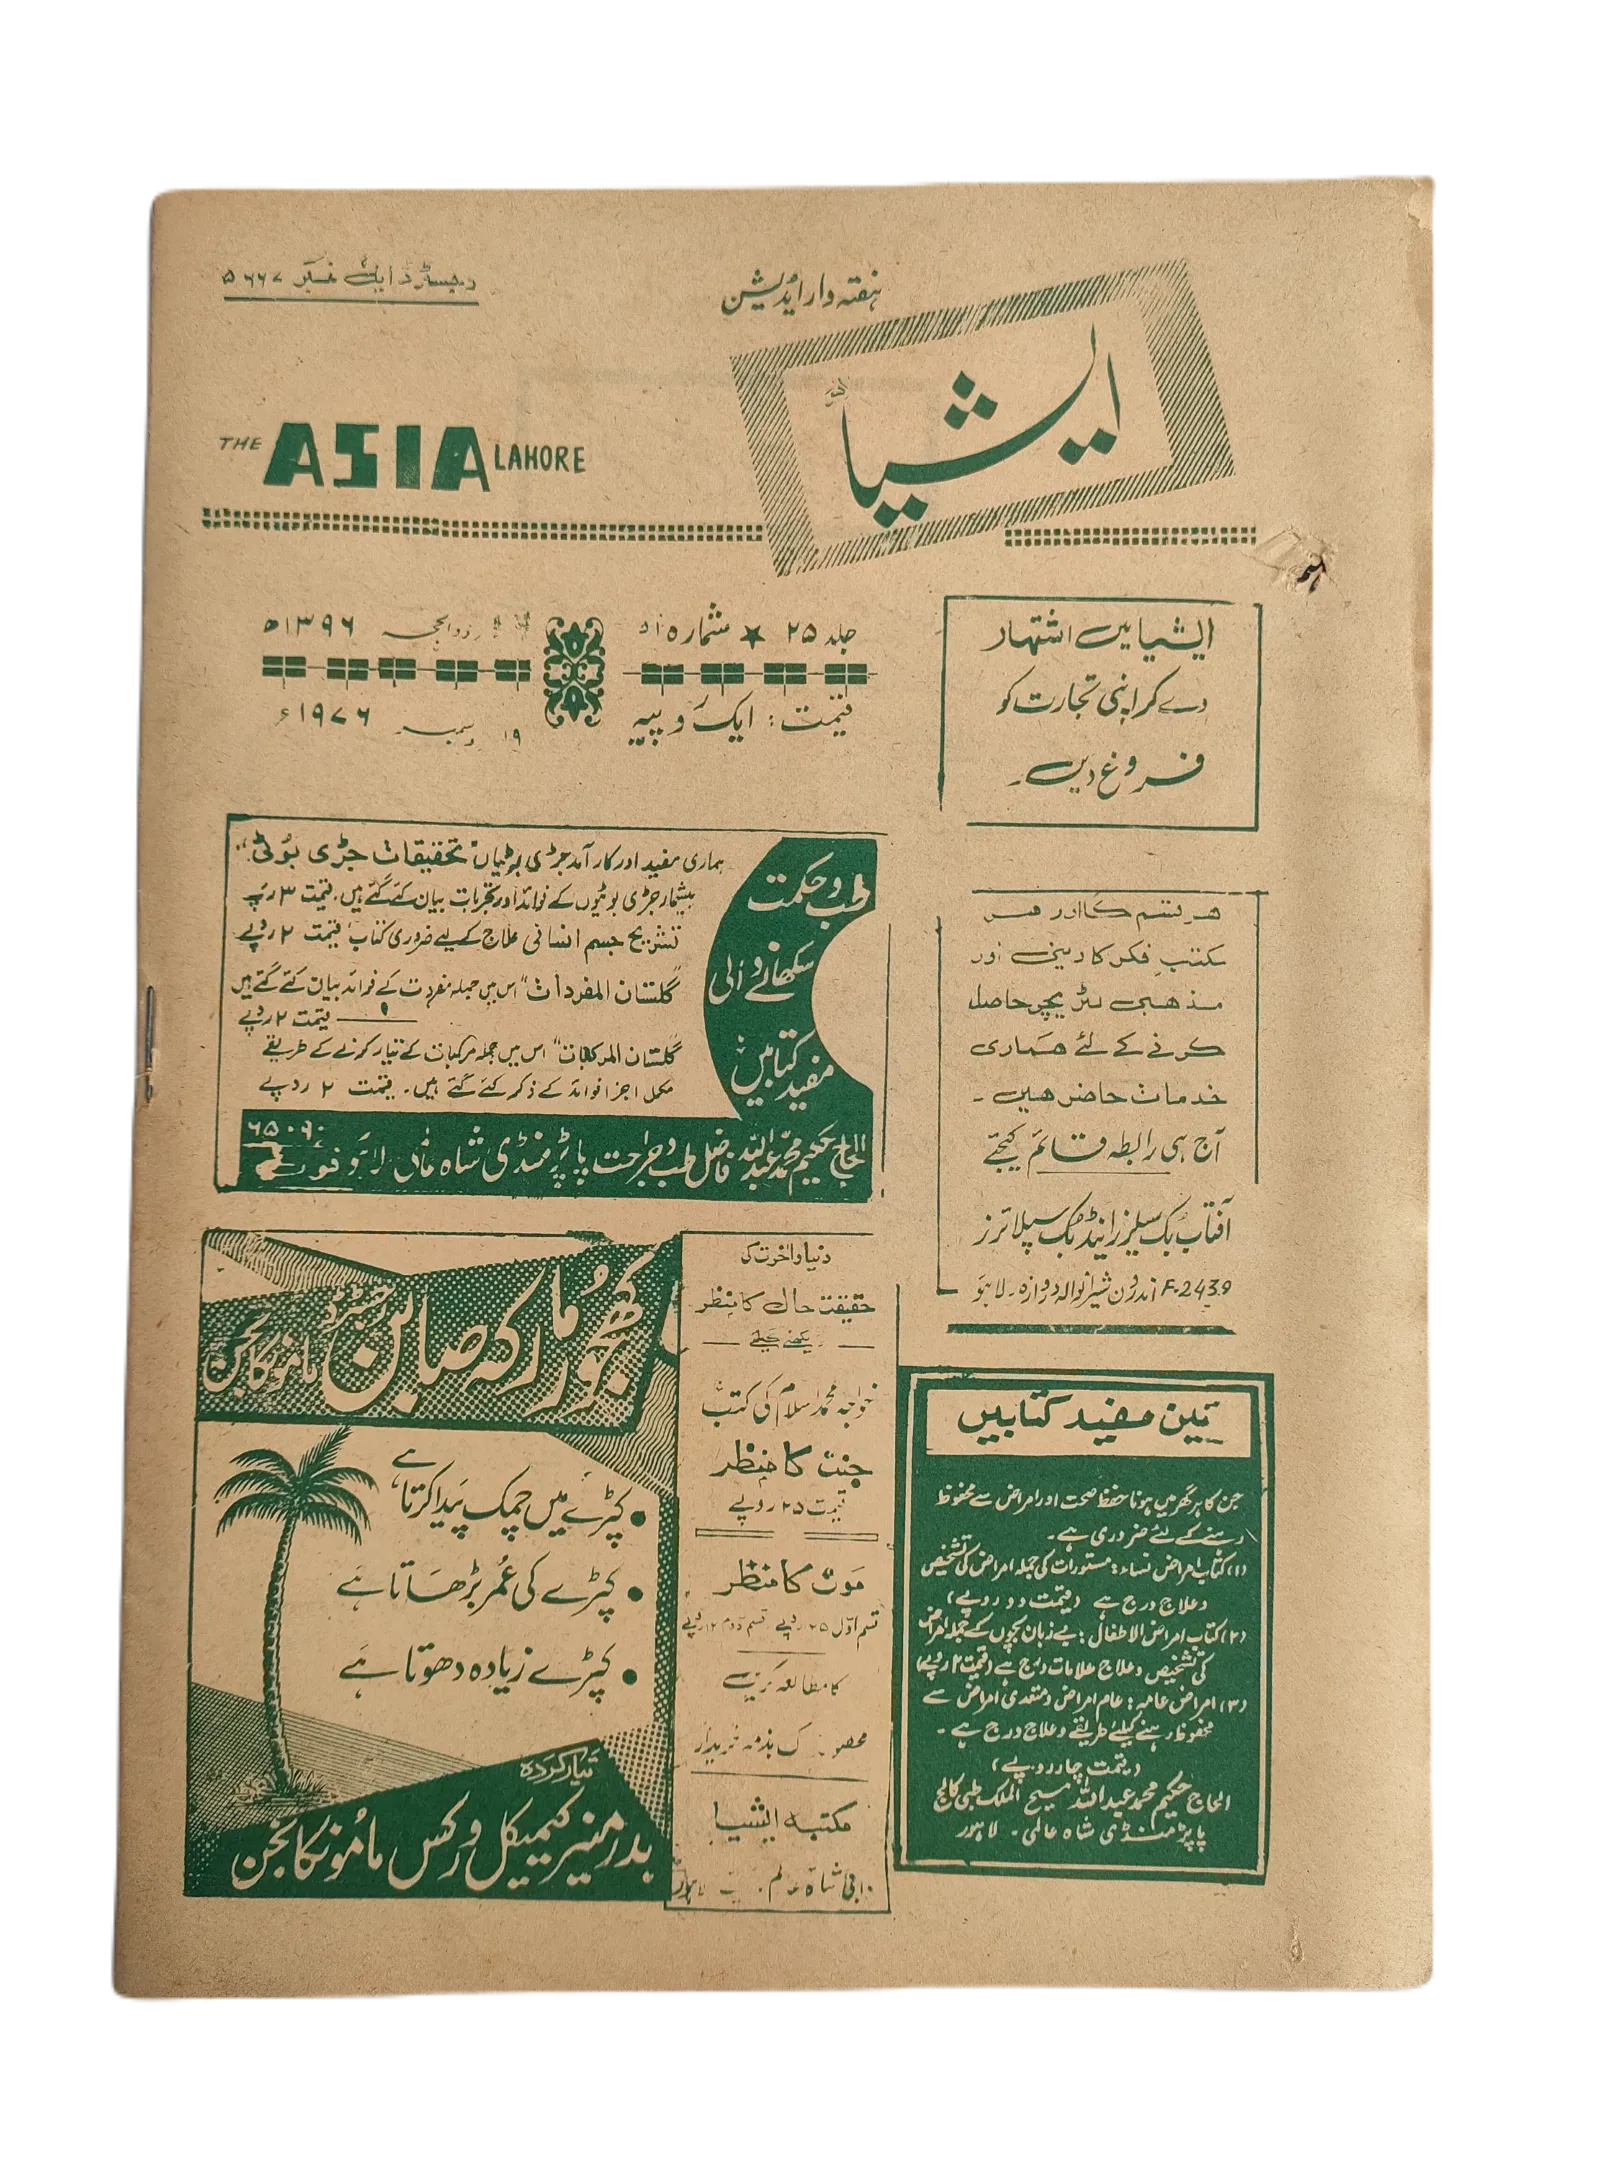 رجسٹرڈ ایل نمبر ۵۶۶۷
ہفتہ وار ایڈیشن
ایشیا
THE ASIA LAHORE
جلد ۲۵ ★ شمارہ ۵۱
ذوالحجہ ۱۳۹۶ھ
قیمت: ایک روپیہ
۱۹ دسمبر ۱۹۷۶ء
ایشیا میں اشتہار
دے کر اپنی تجارت کو
فروغ دیں۔
ہر قسم کا اور ہر
مکتب فکر کا دینی اور
مذہبی لٹریچر حاصل
کرنے کے لئے ہماری
خدمات حاضر ہیں۔
آج ہی رابطہ قائم کیجئے
آفتاب بک سیلرز اینڈ بک سپلائرز
F-2439 اندرون شیرانوالہ دروازہ۔ لاہور
طب و حکمت
سکھانے والی
مفید کتابیں
ہماری مفید اور کار آمد جڑی بوٹیاں "تحقیقات جڑی بوٹی"
بیشمار جڑی بوٹیوں کے فوائد اور تجربات بیان کئے گئے ہیں، قیمت ۳ روپے
تشریح جسم انسانی علاج کے لیے ضروری کتاب قیمت ۲ روپے
"گلستان المفردات" اس میں جملہ مفردات کے فوائد بیان کئے گئے ہیں
قیمت ۲ روپے
"گلستان المرکبات" اس میں جملہ مرکبات کے تیار کرنے کے طریقے
مکمل اجزا فوائد کے ذکر کئے گئے ہیں۔ قیمت ۲ روپے
الحاج حکیم محمد عبداللہ فاضل طب و جراحت پاپڑ منڈی شاہ عالمی لاہور فون ۶۵۰۹۰
کھجور مارکہ صابن رجسٹرڈ ماموں کانجن
• کپڑے میں چمک پیدا کرتا ہے
• کپڑے کی عمر بڑھاتا ہے
• کپڑے زیادہ دھوتا ہے
تیار کردہ
بدر منیر کیمیکل ورکس ماموں کانجن
دنیا و آخرت کی
حقیقت حال کا منظر
دیکھنے کیلئے
خواجہ محمد اسلام کی کتب
جنت کا منظر
قیمت ۲۵ روپے
موت کا منظر
قسم اول ۲۵ روپے قسم دوم ۱۲ روپے
کا مطالعہ کریں
محصول ڈاک بذمہ خریدار
مکتبہ ایشیا
شاہ عالم لاہور
تین مفید کتابیں
جن کا ہر گھر میں ہونا حفظ صحت اور امراض سے محفوظ
رہنے کے لئے ضروری ہے۔
(۱) کتاب امراض نساء: مستورات کی جملہ امراض کی تشخیص
و علاج درج ہے (قیمت دو روپے)
(۲) کتاب امراض الاطفال: بے زبان بچوں کے جملہ امراض
کی تشخیص و علاج علامات درج ہے (قیمت ۲ روپے)
(۳) امراض عامہ: عام امراض و متعدی امراض سے
محفوظ رہنے کیلئے طریقے و علاج درج ہے۔
(قیمت چار روپے)
الحاج حکیم محمد عبداللہ مسیح الملک طبی کالج
پاپڑ منڈی شاہ عالمی۔ لاہور